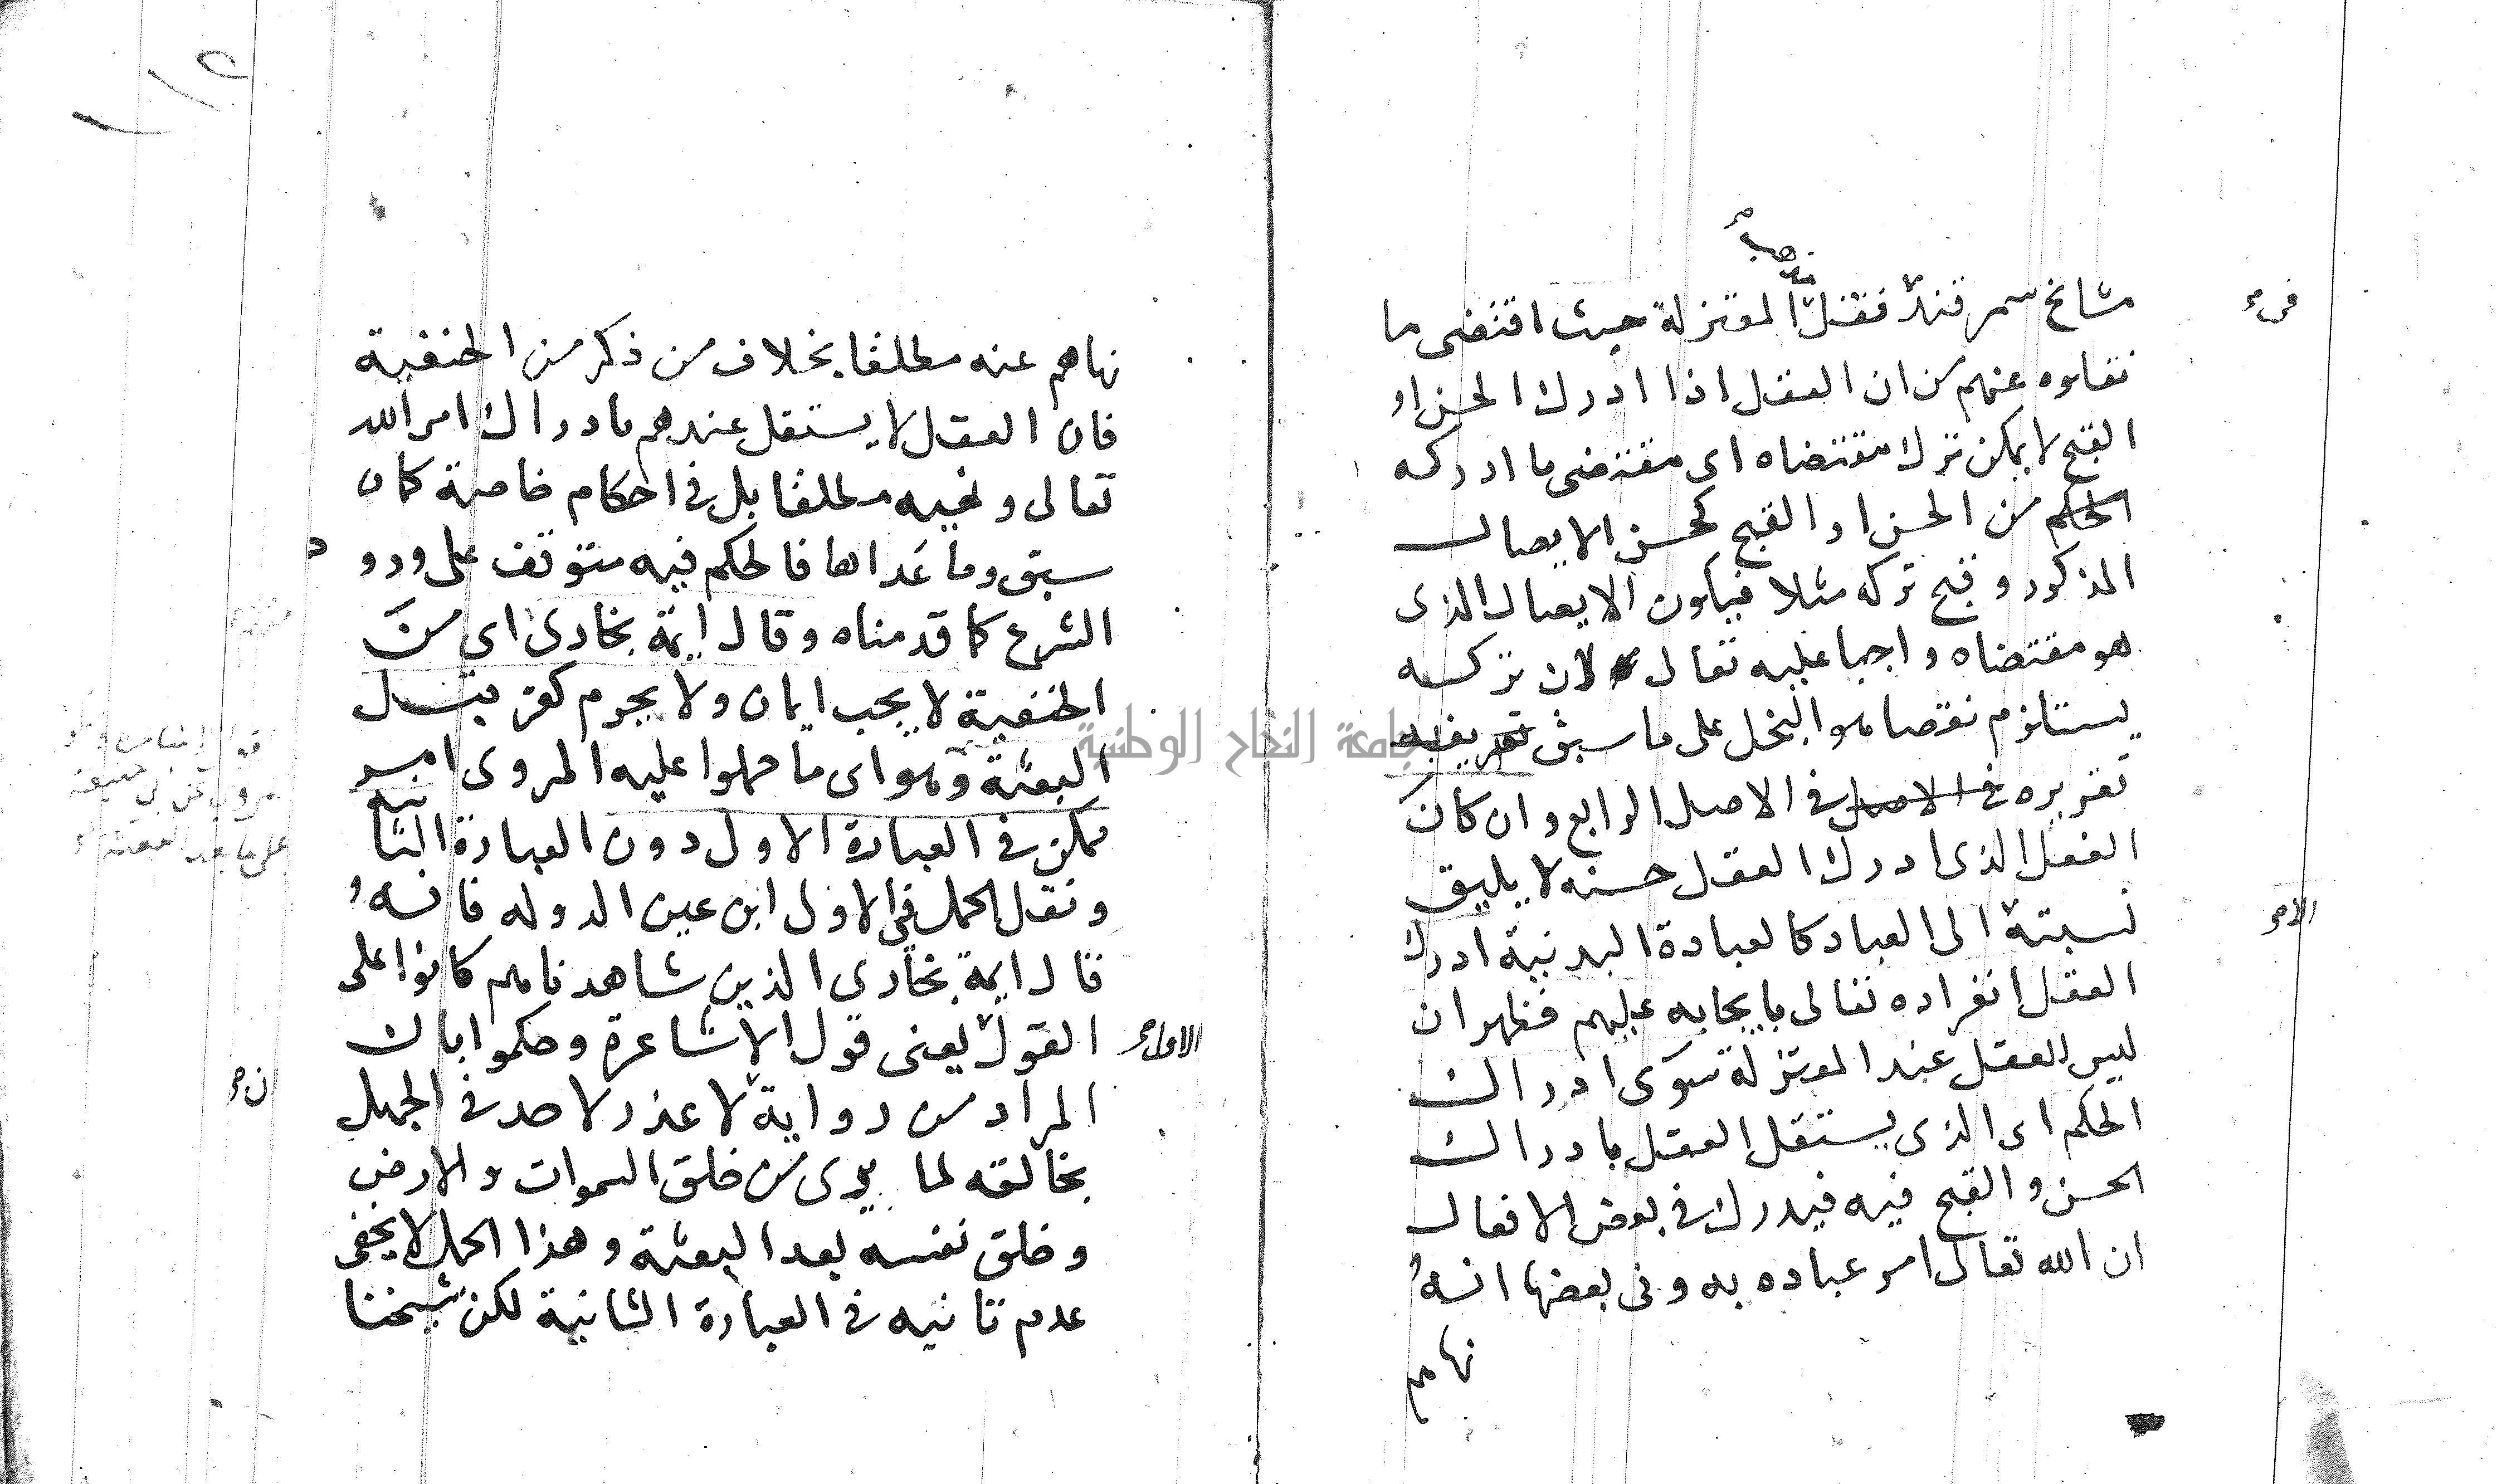 مشايخ سمر قند فنقل المعتزلة حيث اقتضى ما
نقلوه عنهم من ان العقل اذا ادرك الحسن او
القبح لا يمكن ترك مقتضاه اى مقتضى ما ادركه
الحكم من الحسن او القبح كحسن الايصال
المذكور و قبح تركه مثلا فيكون الايصال الذى
هو مقتضاه واجبا عليه تعالى لان تركه
يستلزم نقصا هو البخل على ما سبق
تقريره فى الاصل فى الاصل الرابع وان كان
الفعل الذى ادرك العقل حسنه لا يليق
نسبته الى العباد كالعبادة البدنية ادرك
العقل انفراده تعالى بايجابه عليهم فظهر ان
ليس العقل عند المعتزلة سوى ادراك
الحكم اى الذى يستقل العقل بادراك
الحسن و القبح فيه فيدرك فى بعض الافعال
ان الله تعالى امر عباده به وفى بعضها انه
نهاهم
نهاهم عنه مطلقا بخلاف من ذكر من الحنفية
فان العقل لا يستقل عندهم بادراك امر الله
تعالى ونهيه مطلقا بل فى احكام خاصة كما
سبق وما عداها فالحكم فيه متوقف على ورود
الشرع كما قدمناه وقال ايمة بخارى اى من
الحنفية لا يجب ايمان ولا يحرم كفر قبل
البعثة وهو اى ما حملوا عليه المروى امر
ممكن فى العبارة الاولى دون العبارة الثانية
ونقل الحمل فى الاولى ابن عين الدوله فانه
قال ايمة بخارى الذين شاهدناهم كانوا على
القول يعنى قول الاشاعرة وحكموا بان
الاول صح
المراد من رواية لا عذر لاحد فى الجهل
بخالقه لما يرى من خلق السموات والارض
وخلق نفسه بعد البعثة وهذا الحمل لا يخفى
عدم تاتيه فى العبارة الثانية لكن شيخنا
جامعة النجاح الوطنية